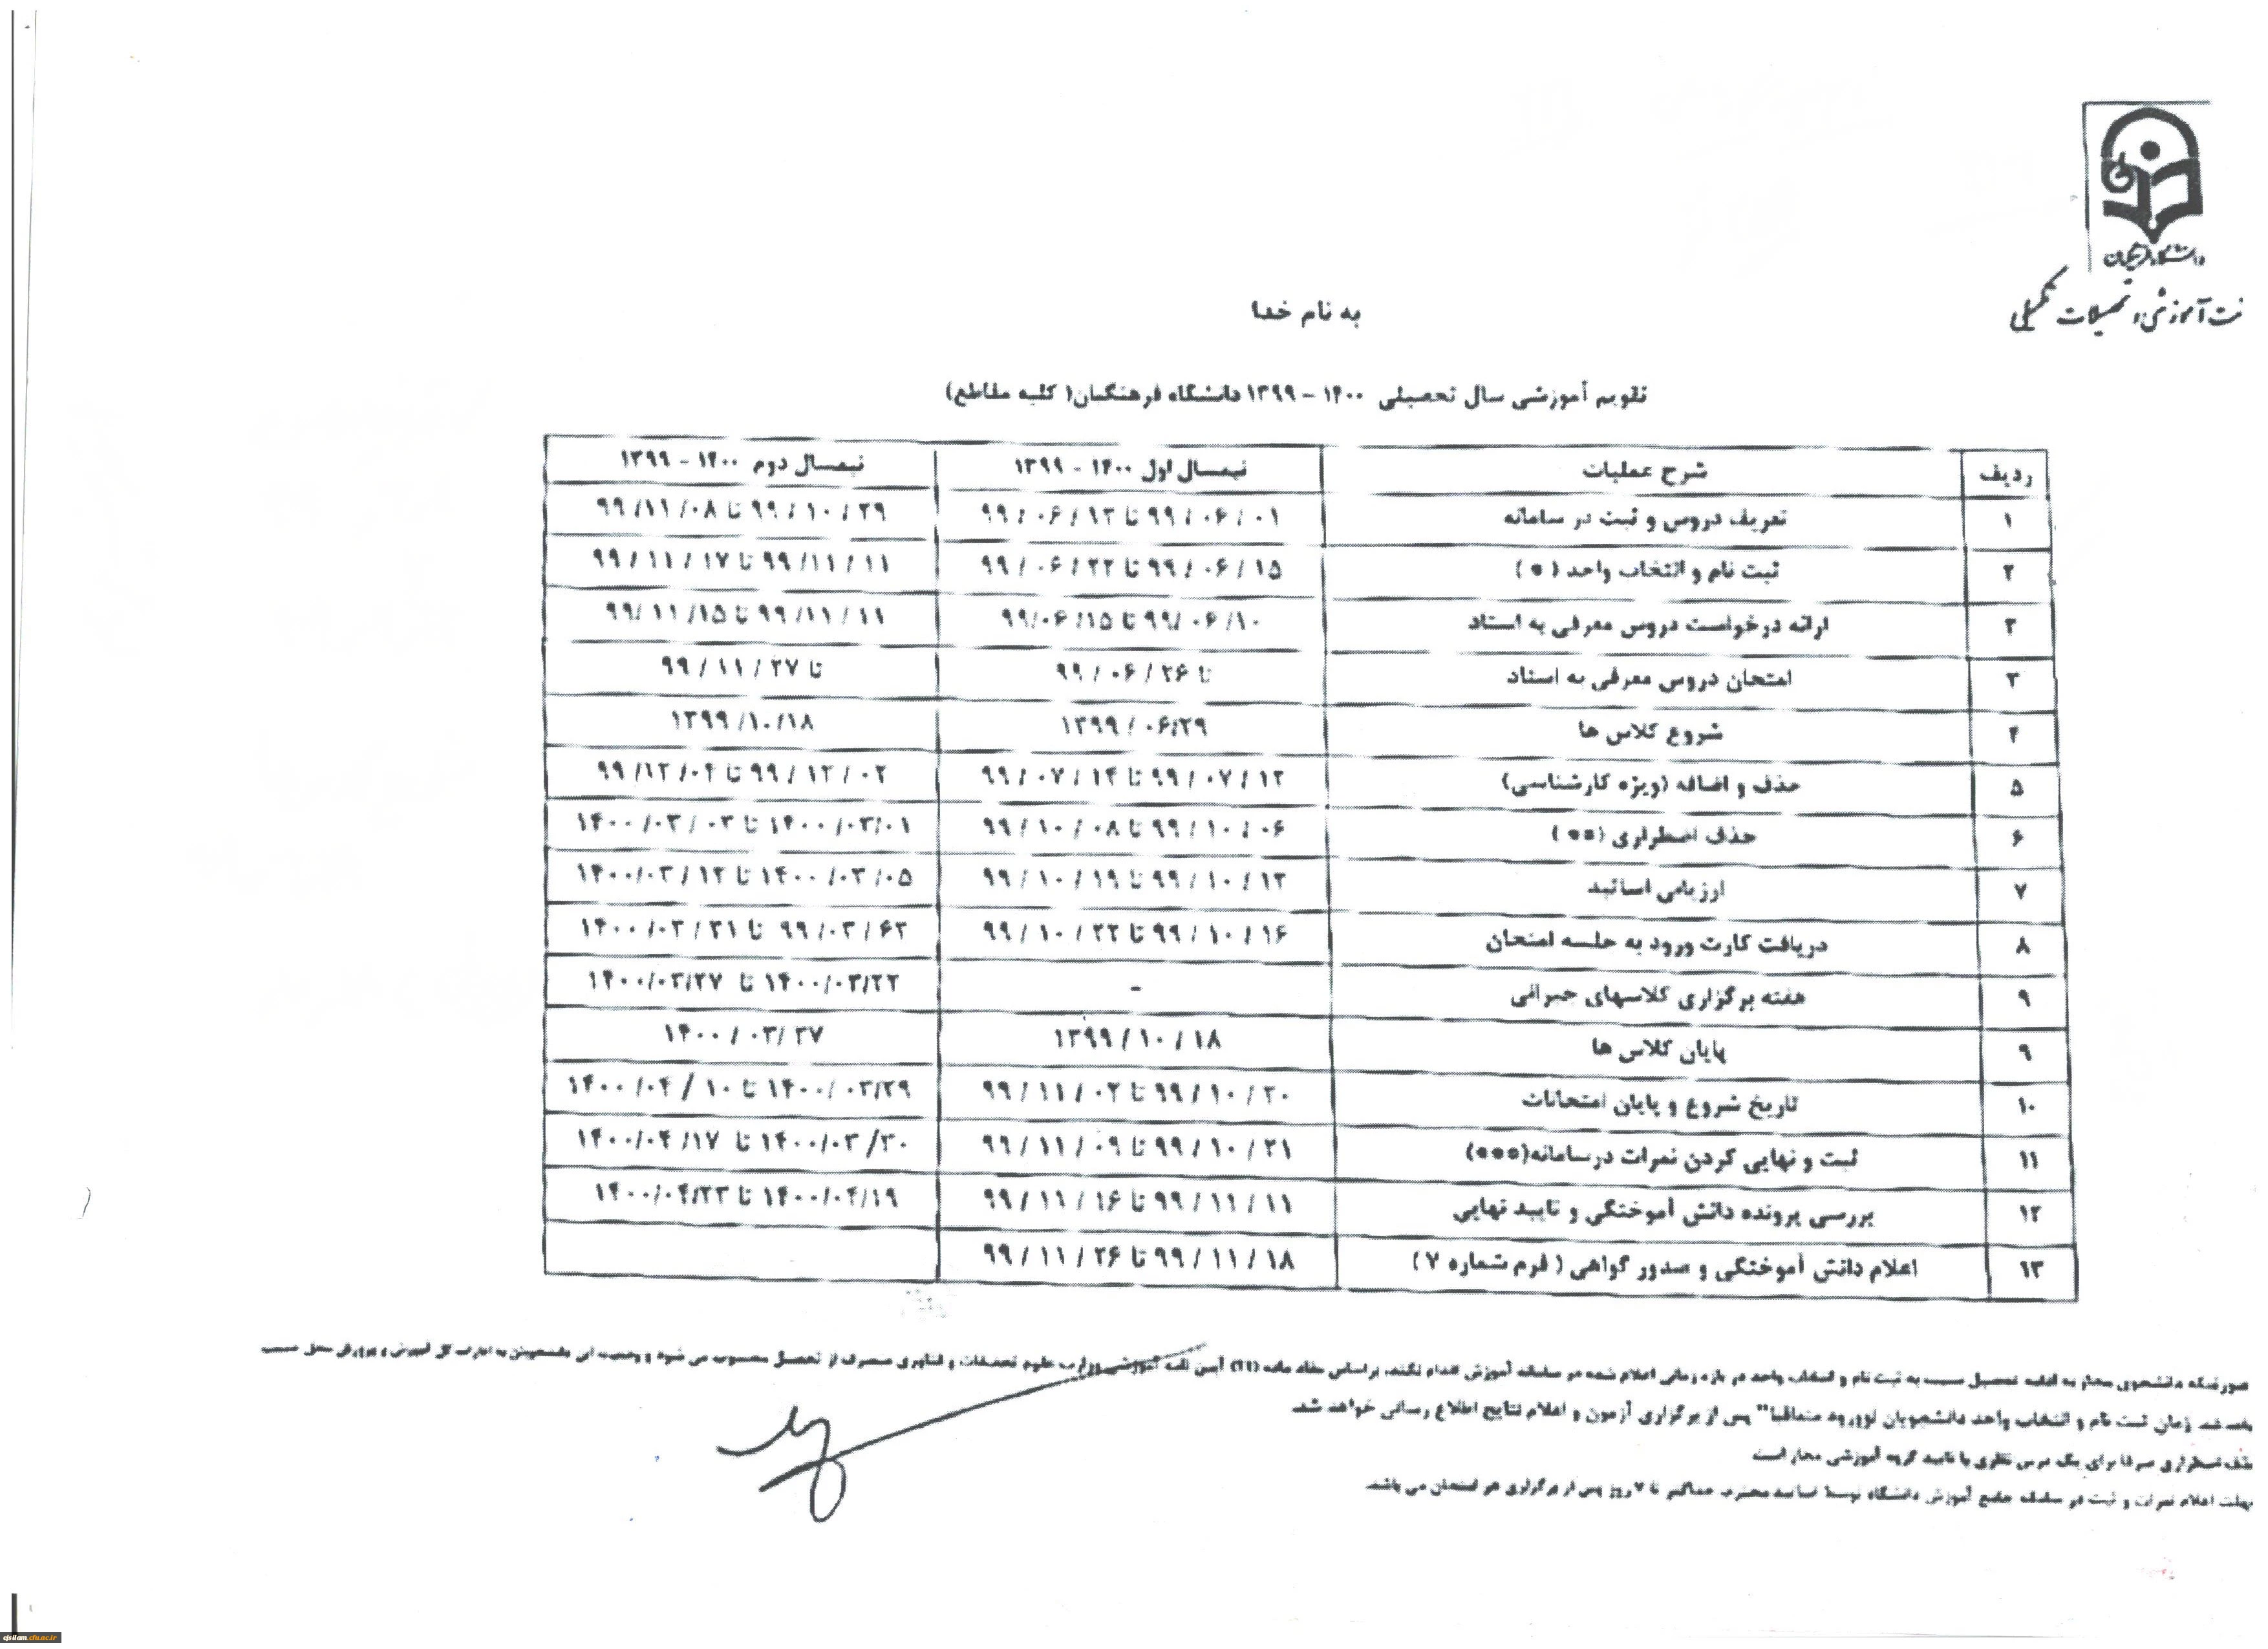 دانشگاه فرهنگیان
آموزشی و تحصیلات تکمیلی
به نام خدا
تقویم آموزشی سال تحصیلی ۱۴۰۰ - ۱۳۹۹ دانشگاه فرهنگیان( کلیه مقاطع)
ردیف شرح عملیات نیمسال اول ۱۴۰۰ - ۱۳۹۹ نیمسال دوم ۱۴۰۰ - ۱۳۹۹
۱ تعریف دروس و ثبت در سامانه ۹۹/۰۶/۰۱ تا ۹۹/۰۶/۱۳ ۹۹/۱۰/۲۹ تا ۹۹/۱۱/۰۸
۲ ثبت نام و انتخاب واحد (*) ۹۹/۰۶/۱۵ تا ۹۹/۰۶/۲۲ ۹۹/۱۱/۱۱ تا ۹۹/۱۱/۱۷
۳ ارائه درخواست دروس معرفی به استاد ۹۹/۰۶/۱۰ تا ۹۹/۰۶/۱۵ ۹۹/۱۱/۱۱ تا ۹۹/۱۱/۱۵
۳ امتحان دروس معرفی به استاد تا ۹۹/۰۶/۲۶ تا ۹۹/۱۱/۲۷
۴ شروع کلاس ها ۱۳۹۹/۰۶/۲۹ ۱۳۹۹/۱۰/۱۸
۵ حذف و اضافه (ویژه کارشناسی) ۹۹/۰۷/۱۲ تا ۹۹/۰۷/۱۴ ۹۹/۱۲/۰۲ تا ۹۹/۱۲/۰۴
۶ حذف اضطراری (**) ۹۹/۱۰/۰۶ تا ۹۹/۱۰/۰۸ ۱۴۰۰/۰۳/۰۱ تا ۱۴۰۰/۰۳/۰۳
۷ ارزیابی اساتید ۹۹/۱۰/۱۳ تا ۹۹/۱۰/۱۹ ۱۴۰۰/۰۳/۰۵ تا ۱۴۰۰/۰۳/۱۲
۸ دریافت کارت ورود به جلسه امتحان ۹۹/۱۰/۱۶ تا ۹۹/۱۰/۲۲ ۹۹/۰۳/۶۳ تا ۱۴۰۰/۰۳/۳۱
۹ هفته برگزاری کلاسهای جبرانی - ۱۴۰۰/۰۳/۲۲ تا ۱۴۰۰/۰۳/۲۷
۹ پایان کلاس ها ۱۳۹۹/۱۰/۱۸ ۱۴۰۰/۰۳/۲۷
۱۰ تاریخ شروع و پایان امتحانات ۹۹/۱۰/۲۰ تا ۹۹/۱۱/۰۲ ۱۴۰۰/۰۳/۲۹ تا ۱۴۰۰/۰۴/۱۰
۱۱ ثبت و نهایی کردن نمرات درسامانه(***) ۹۹/۱۰/۲۱ تا ۹۹/۱۱/۰۹ ۱۴۰۰/۰۳/۳۰ تا ۱۴۰۰/۰۴/۱۷
۱۲ بررسی پرونده دانش آموختگی و تایید نهایی ۹۹/۱۱/۱۱ تا ۹۹/۱۱/۱۶ ۱۴۰۰/۰۴/۱۹ تا ۱۴۰۰/۰۴/۲۳
۱۳ اعلام دانش آموختگی و صدور گواهی ( فرم شماره ۷ ) ۹۹/۱۱/۱۸ تا ۹۹/۱۱/۲۶
دانشجوی مجاز به ادامه تحصیل نسبت به ثبت نام و انتخاب واحد در بازه زمانی اعلام شده در سامانه آموزش اقدام نکند، براساس مفاد ماده (11) آیین نامه آموزشی وزارت علوم تحقیقات و فناوری منصرف از تحصیل محسوب می شود و
زمان ثبت نام و انتخاب واحد دانشجویان نوورود متعاقبا" پس از برگزاری آزمون و اعلام نتایج اطلاع رسانی خواهد شد.
حذف اضطراری صرفا برای یک درس نظری با تایید گروه آموزشی مجاز است
مهلت اعلام نمرات و ثبت در سامانه جامع آموزش دانشگاه توسط اساتید محترم حداکثر تا ۷ روز پس از برگزاری هر امتحان می باشد.
ejsilam.cfu.ac.ir